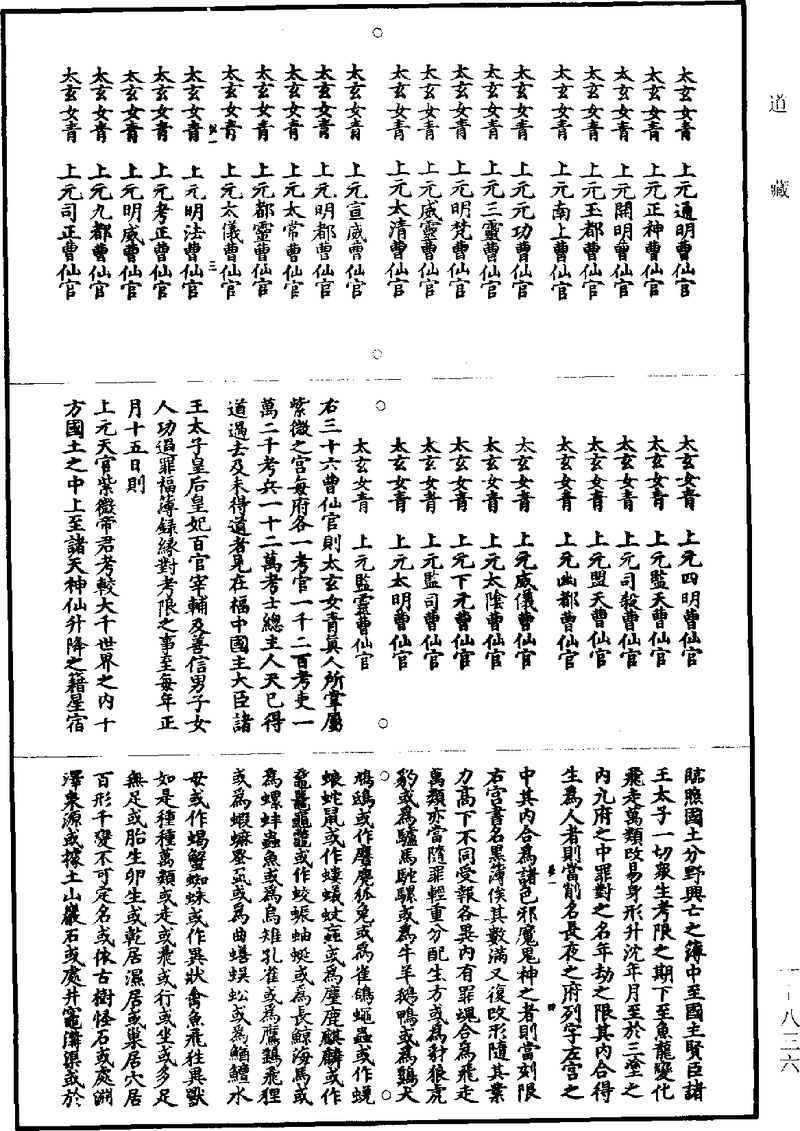 道藏
太玄女青　上元通明曹仙官
太玄女青　上元正神曹仙官
太玄女青　上元開明曹仙官
太玄女青　上元玉都曹仙官
太玄女青　上元南上曹仙官
太玄女青　上元元功曹仙官
太玄女青　上元三靈曹仙官
太玄女青　上元明梵曹仙官
太玄女青　上元威靈曹仙官
太玄女青　上元太清曹仙官
太玄女青　上元宣威曹仙官
太玄女青　上元明都曹仙官
太玄女青　上元太常曹仙官
太玄女青　上元都靈曹仙官
太玄女青　上元太儀曹仙官
三
太玄女青　上元明法曹仙官
太玄女青　上元考正曹仙官
太玄女青　上元明威曹仙官
太玄女青　上元九都曹仙官
太玄女青　上元司正曹仙官
太玄女青　上元四明曹仙官
太玄女青　上元監天曹仙官
太玄女青　上元司殺曹仙官
太玄女青　上元盟天曹仙官
太玄女青　上元幽都曹仙官
太玄女青　上元威儀曹仙官
太玄女青　上元太陰曹仙官
太玄女青　上元下元曹仙官
太玄女青　上元監司曹仙官
太玄女青　上元太明曹仙官
太玄女青　上元監靈曹仙官
右三十六曹仙官則太玄女青真人所掌屬
紫微之宮每府各一考官一千二百考吏一
萬二千考兵一十二萬考士總主人天已得
道過去及未得道者見在福中國主大臣諸
王太子皇后皇妃百官宰輔及善信男子女
人功過罪福簿録緣對考限之事至每年正
月十五日則
上元天官紫微帝君考較大千世界之內十
方國土之中上至諸天神仙升降之籍星宿
臨照國土分野興亡之簿中至國主賢臣諸
王太子一切衆生考限之期下至魚龍變化
飛走萬類改易身形升沈年月至於三塗之
內九府之中罪對之名年劫之限其內合得
生爲人者則當削名長夜之府列字左宮之
四
中其內合爲諸色邪魔鬼神之者則當刻限
右宮書名黑簿俟其數滿又復改形隨其業
力高下不同受報各異內有罪魂合爲飛走
萬類亦當隨罪輕重分配生方或爲豺狼虎
豹或爲驢馬駝騾或爲牛羊鵝鴨或爲雞犬
鴆鴟或作麞麂狐兔或爲雀鴿蠅蟲或作蜆
蜋蛇鼠或作螻蟻蚊蝱或爲麈鹿麒麟或作
黿鼉龜鼈或作蛟蜃蚰蜒或爲長鯨海馬或
爲螺蚌蟲魚或爲烏雉孔雀或爲鷹鷂飛狸
或爲蝦蟆螢虱或爲曲蟮蜈蚣或爲鰌鱧水
母或作蝎蟹蜘蛛或作異狀禽魚飛往異獸
如是種種萬類或走或飛或行或坐或多足
無足或胎生卵生或乾居濕居或巢居穴居
百形千變不可定名或依古樹怪石或處淵
澤泉源或據土山巖石或處井竈溝渠或於
一-八三六